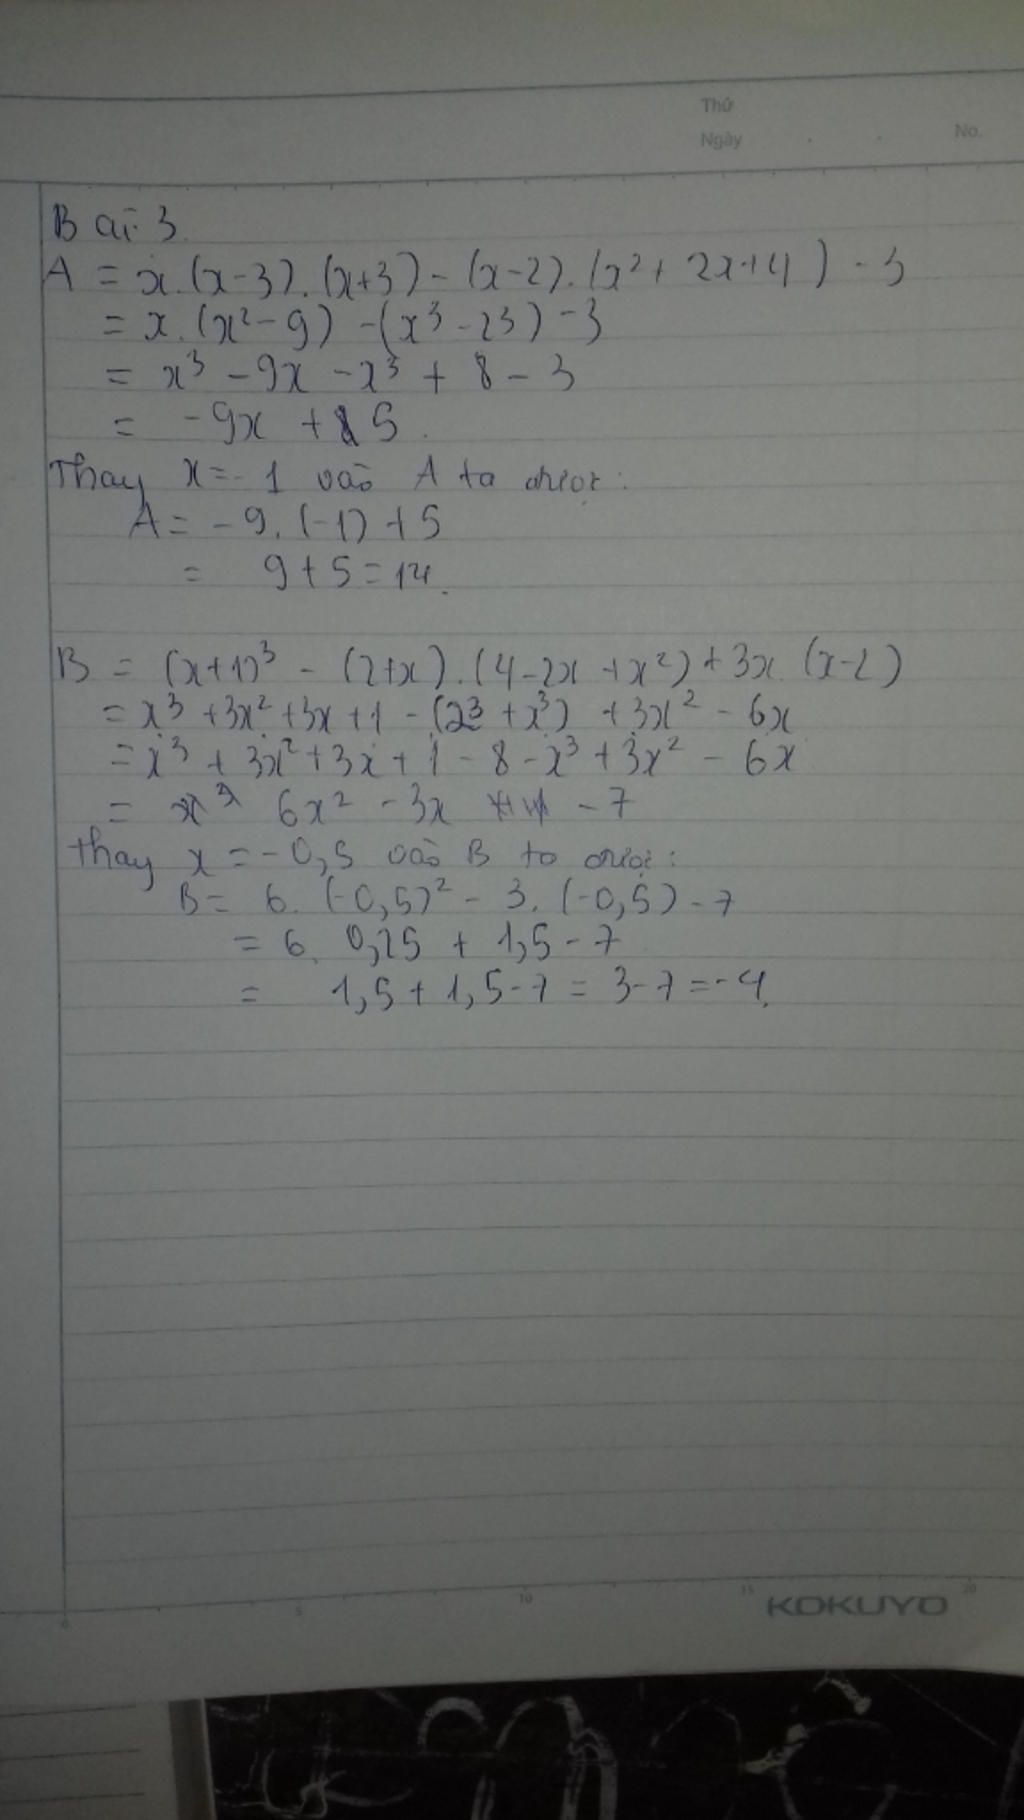 Thứ
Ngày . . No.
Bài 3
A = x.(x-3).(x+3) - (x-2).(x²+ 2x+4) - 3
= x.(x²-9) -(x³-2³) -3
= x³ -9x -x³ + 8 - 3
= -9x + 5.
Thay x=-1 vào A ta được:
A= -9.(-1) +5
= 9+5=14.
B = (x+1)³ - (2+x).(4-2x +x²)+3x.(x-2)
= x³ +3x²+3x+1 -(2³ +x³) +3x² - 6x
= x³ + 3x²+3x+1 - 8 -x³ +3x² - 6x
= 6x² -3x -7
Thay x = -0,5 vào B ta được:
B= 6.(-0,5)² - 3.(-0,5) -7
= 6. 0,25 + 1,5 - 7
= 1,5 + 1,5-7 = 3-7 =-4.
0 5 10 15 20
KOKUYO